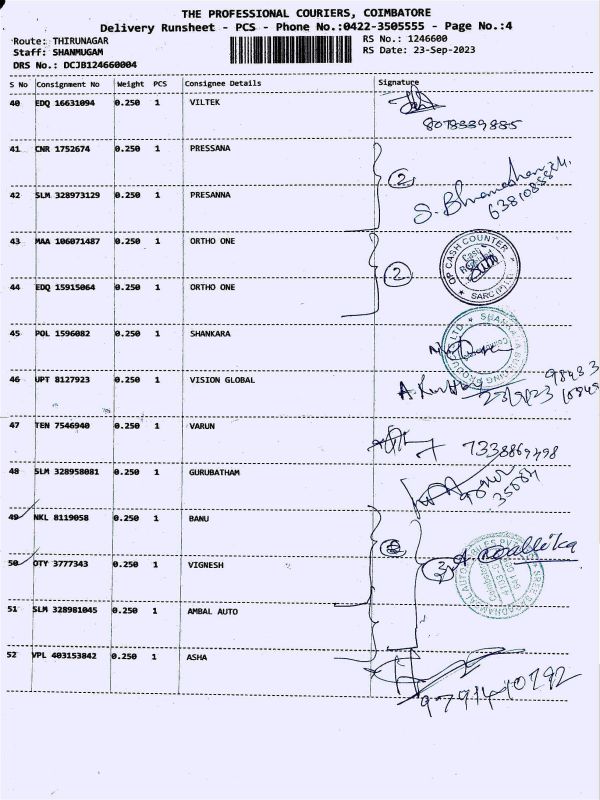 THE PROFESSIONAL COURIERS, COIMBATORE
Delivery Runsheet - PCS - Phone No.:0422-3505555 - Page No.:4
Route: THIRUNAGAR
RS No.: 1246600
Staff: SHANMUGAM
RS Date: 23-Sep-2023
DRS No.: DCJB124660004
S No Consignment No Weight PCS Consignee Details Signature
40 EDQ 16631094 0.250 1 VILTEK
41 CNR 1752674 0.250 1 PRESSANA
2
42 SLM 328973129 0.250 1 PRESANNA
43 MAA 106071487 0.250 1 ORTHO ONE
OP CASH COUNTER
2
SARC (P) LTD
44 EDQ 15915064 0.250 1 ORTHO ONE
45 POL 1596082 0.250 1 SHANKARA
46 UPT 8127923 0.250 1 VISION GLOBAL
23/9/23
47 TEN 7546940 0.250 1 VARUN
7338869498
48 SLM 328958081 0.250 1 GURUBATHAM
49 NKL 8119058 0.250 1 BANU
50 OTY 3777343 0.250 1 VIGNESH
3
51 SLM 328981045 0.250 1 AMBAL AUTO
52 VPL 403153842 0.250 1 ASHA
9791410292